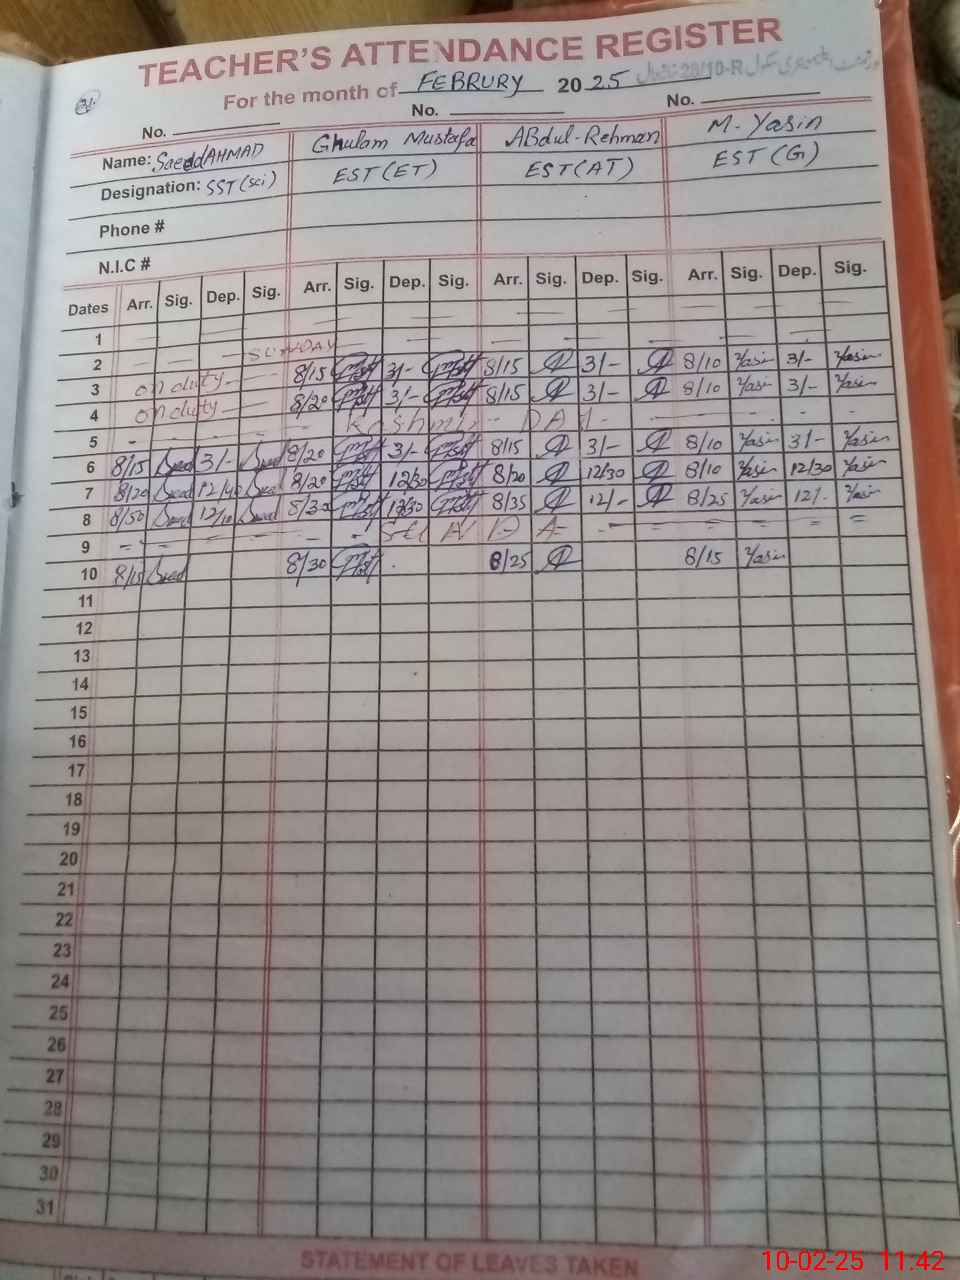 TEACHER'S ATTENDANCE REGISTER
For the month of FEBRURY 2025
28/10-R
No. No. No.
Name: Saeed AHMAD Ghulam Mustafa ABdul-Rehman M. Yasin
Designation: SST (sci) EST (ET) EST (AT) EST (G)
Phone #
N.I.C #
Dates Arr. Sig. Dep. Sig. Arr. Sig. Dep. Sig. Arr. Sig. Dep. Sig. Arr. Sig. Dep. Sig.
1
2 SUNDAY
3 on duty 8/15 3/- 8/15 3/- 8/10 Yasin 3/- Yasin
4 on duty 8/20 3/- 8/15 3/- 8/10 Yasin 3/- Yasin
5 Kashmir DAY
6 8/15 Saeed 3/- Saeed 8/20 3/- 8/15 3/- 8/10 Yasin 3/- Yasin
7 8/20 Saeed 12/40 Saeed 8/20 12/30 8/20 12/30 8/10 Yasin 12/30 Yasin
8 8/50 Saeed 12/10 Saeed 8/30 8/35 12/- 8/25 Yasin 12/- Yasin
9
10 8/15 Saeed 8/30 8/25 8/15 Yasin
11
12
13
14
15
16
17
18
19
20
21
22
23
24
25
26
27
28
29
30
31
STATEMENT OF LEAVES TAKEN
10-02-25 11:42